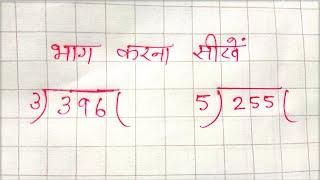 भाग करना सीखें
3)396( 5)255(